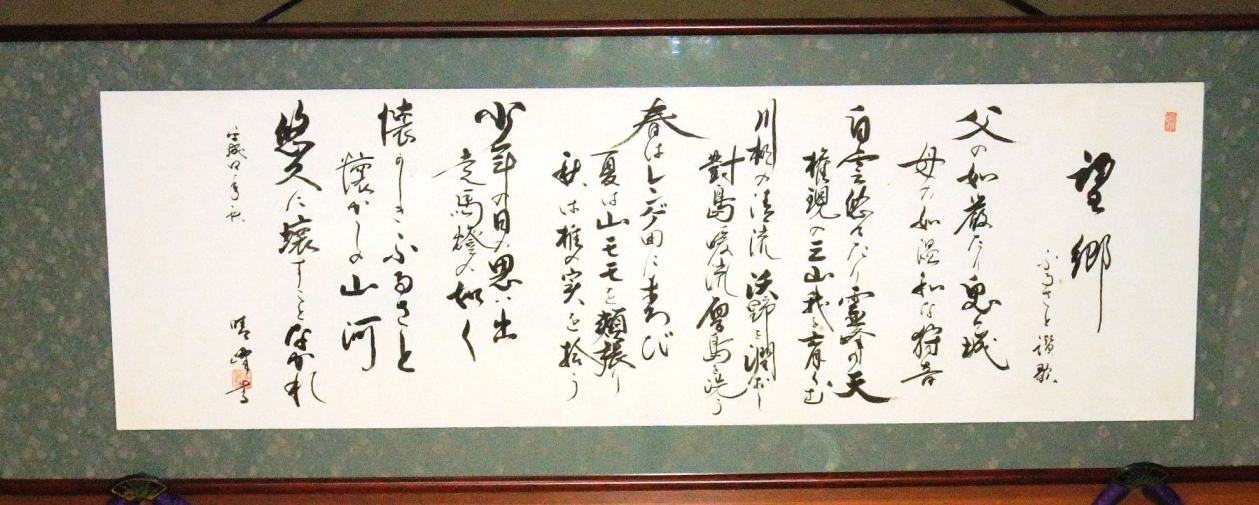 望郷
ふるさと讃歌
父の如厳たり鬼ヶ城
母の如温和な狩音
白雲悠々たり霊峰の天
権現の三山我を育くむ
川棚の清流 沃野を潤おし
對島暖流 厚島を洗う
春はレンゲ田に遊び
夏は山モモを頬張り
秋は椎の実を拾う
少年の日の思い出
走馬燈の如く
懐かしきふるさと
懐かしの山河
悠久に壊すことなかれ
平成
晴峰 書